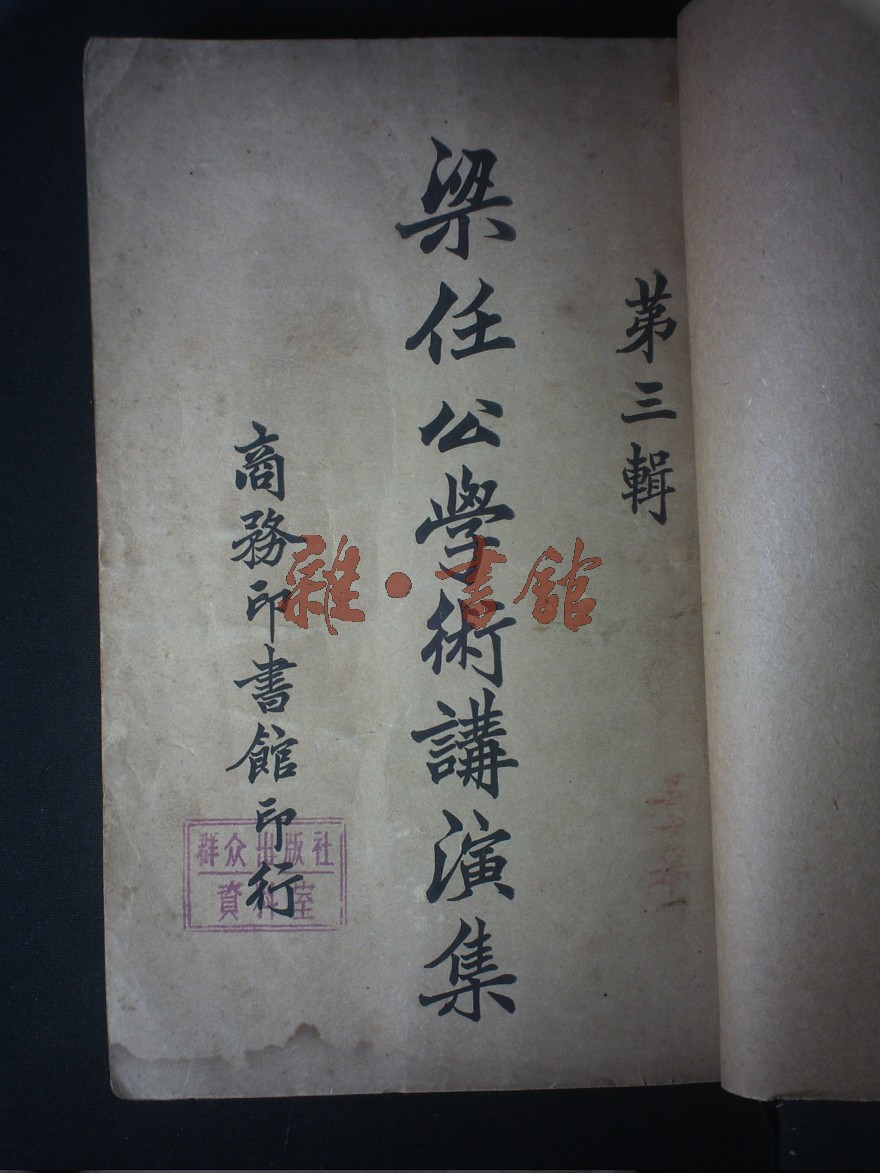 第三輯
梁任公學術講演集
商務印書館印行
群众出版社
資料室
雜·書館